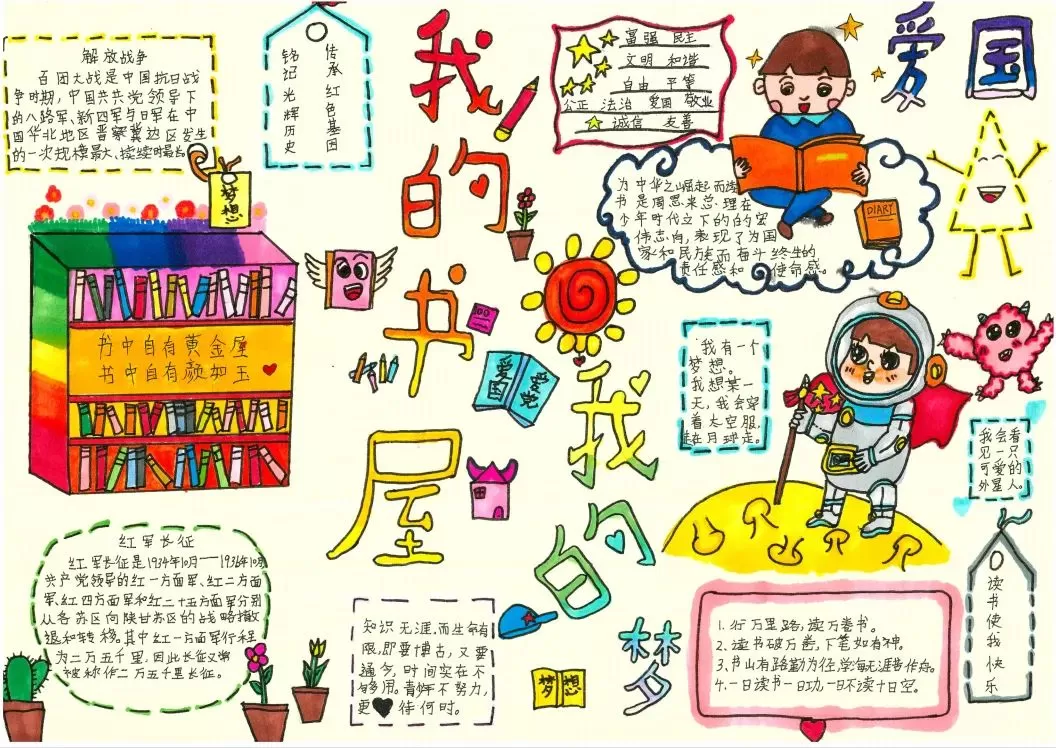 解放战争
百团大战是中国抗日战
争时期,中国共共党领导下
的八路军、新四军与日军在中
国华北地区晋察冀边区发生
的一次规模最大、持续时最长
传承红色基因
铭记光辉历史
梦想
我的书屋
我的梦
爱国
富强 民主
文明 和谐
自由 平等
公正 法治 爱国 敬业
诚信 友善
为中华之崛起而读
书是周恩来总理在
少年时代立下的的宏
伟志向,表现了为国
家和民族而奋斗终生的
责任感和使命感。
DIARY
书中自有黄金屋
书中自有颜如玉
100
爱国
爱党
我有一个
梦想。
我想某一
天,我会穿
着太空服,
在月球走。
我会看
见一只
可爱的
外星人。
红军长征
红军长征是1934年10月——1936年10月
共产党领导的红一方面军、红二方面
军、红四方面军和红二十五方面军分别
从各苏区向陕甘苏区的战略撤
退和转移。其中红一方面军行程
为二万五千里,因此长征又常
被称作二万五千里长征。
知识无涯,而生命有
限,即要博古,又要
通今,时间实在不
够用。青年不努力,
更待何时。
梦想
1.行万里路,读万卷书。
2.读书破万卷,下笔如有神。
3.书山有路勤为径,学海无涯苦作舟。
4.一日读书一日功,一日不读十日空。
读书使我快乐